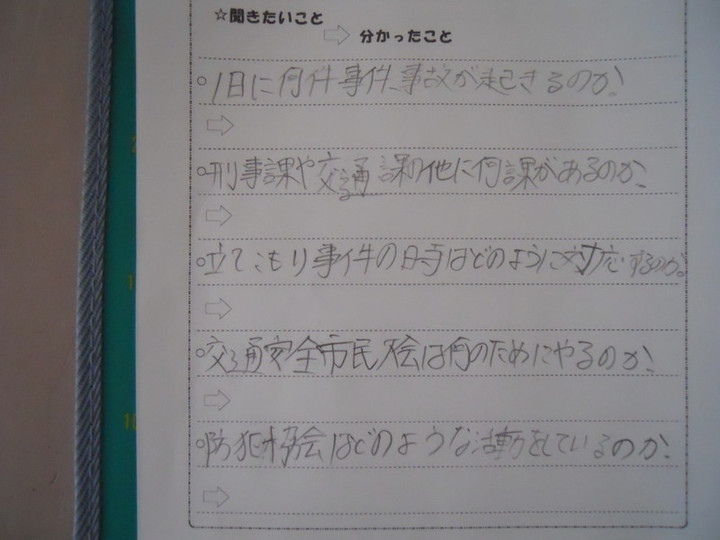 ☆聞きたいこと
⇨ 分かったこと
○1日に何件事件、事故が起きるのか。
⇨
○刑事課や交通課の他に何課があるのか。
⇨
○立てこもり事件の時はどのように対応するのか。
⇨
○交通安全市民会は何のためにやるのか。
⇨
○防犯協会はどのような活動をしているのか。
⇨